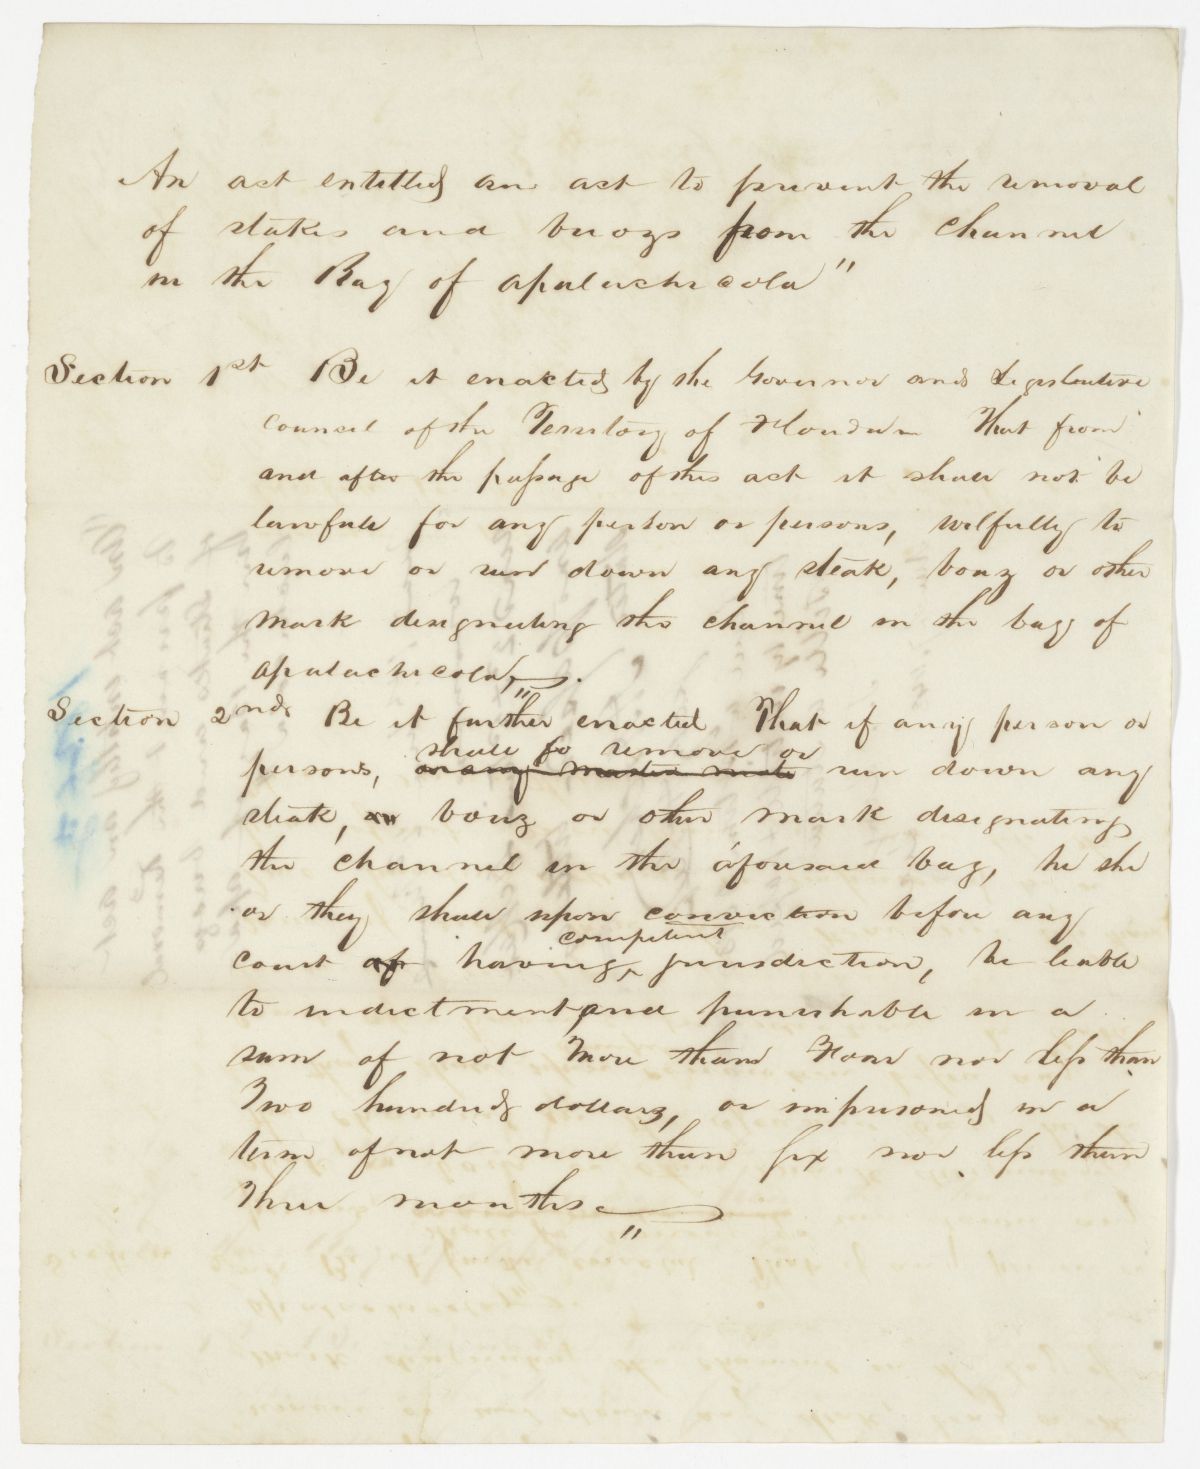 An act entitled an act to prevent the removal
of stakes and buoys from the channel
in the Bay of Apalachicola"
Section 1st Be it enacted by the Governor and Legislative
Council of the Territory of Florida That from
and after the passage of this act it shall not be
lawfull for any person or persons, wilfully to
remove or run down any steak, bouy or other
mark designating the channel in the bay of
apalachicola.
Section 2nd Be it further enacted That if any person or
shall so remove or
persons, or any master mate run down any
steak, or bouy or other mark designating
the channel in the afouresaid bay, he she
or they shall upon conviction before any
competent
court of having jurisdiction, be leable
to indictment, and punishable in a
sum of not more than Four nor less than
Two hundred dollars, or imprisoned in a
term of not more than six nor less than
Three months